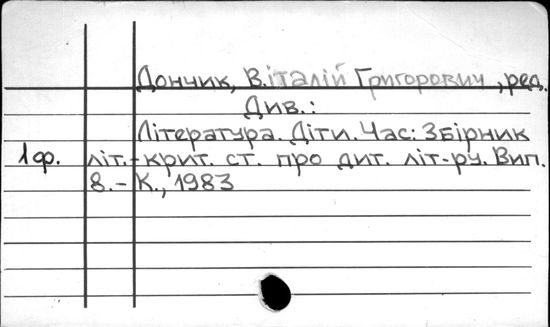 Дончик, Віталій Григорович, ред.
Див.:
Література. Діти. Час: Збірник
1 ф. літ.-крит. ст. про дит. літ-ру. Вип.
8.- К., 1983